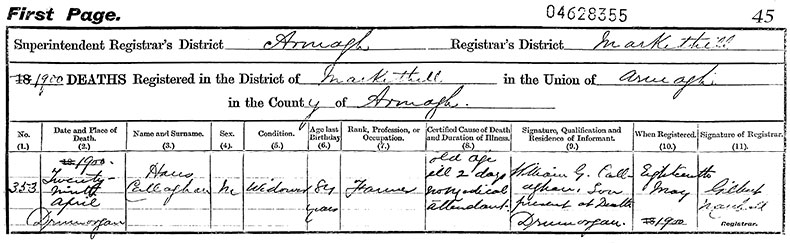 First Page. 04628355 45
Superintendent Registrar's District Armagh Registrar's District Markethill
18 1900 DEATHS Registered in the District of Markethill in the Union of Armagh
in the County of Armagh.
No. Date and Place of Death. Name and Surname. Sex. Condition. Age last Birthday Rank, Profession, or Occupation. Certified Cause of Death and Duration of Illness. Signature, Qualification and Residence of Informant. When Registered. Signature of Registrar.
(1.) (2.) (3.) (4.) (5.) (6.) (7.) (8.) (9.) (10.) (11.)
353
18 1900.
Twenty-
ninth
April
Drumorgan
Hans
Callaghan
M
Widower
years
Farmer
old age
ill 2 days
no medical
attendant.
William G. Call-
aghan, Son
present at Death
Drumorgan.
Eighteenth
May
18 1900
Gilbert
Registrar.